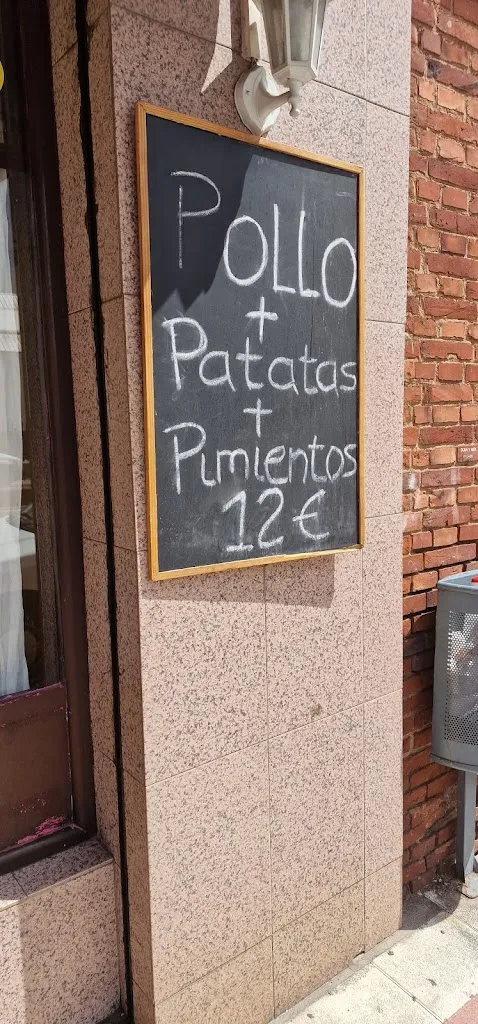 POLLO
+
Patatas
+
Pimientos
12€